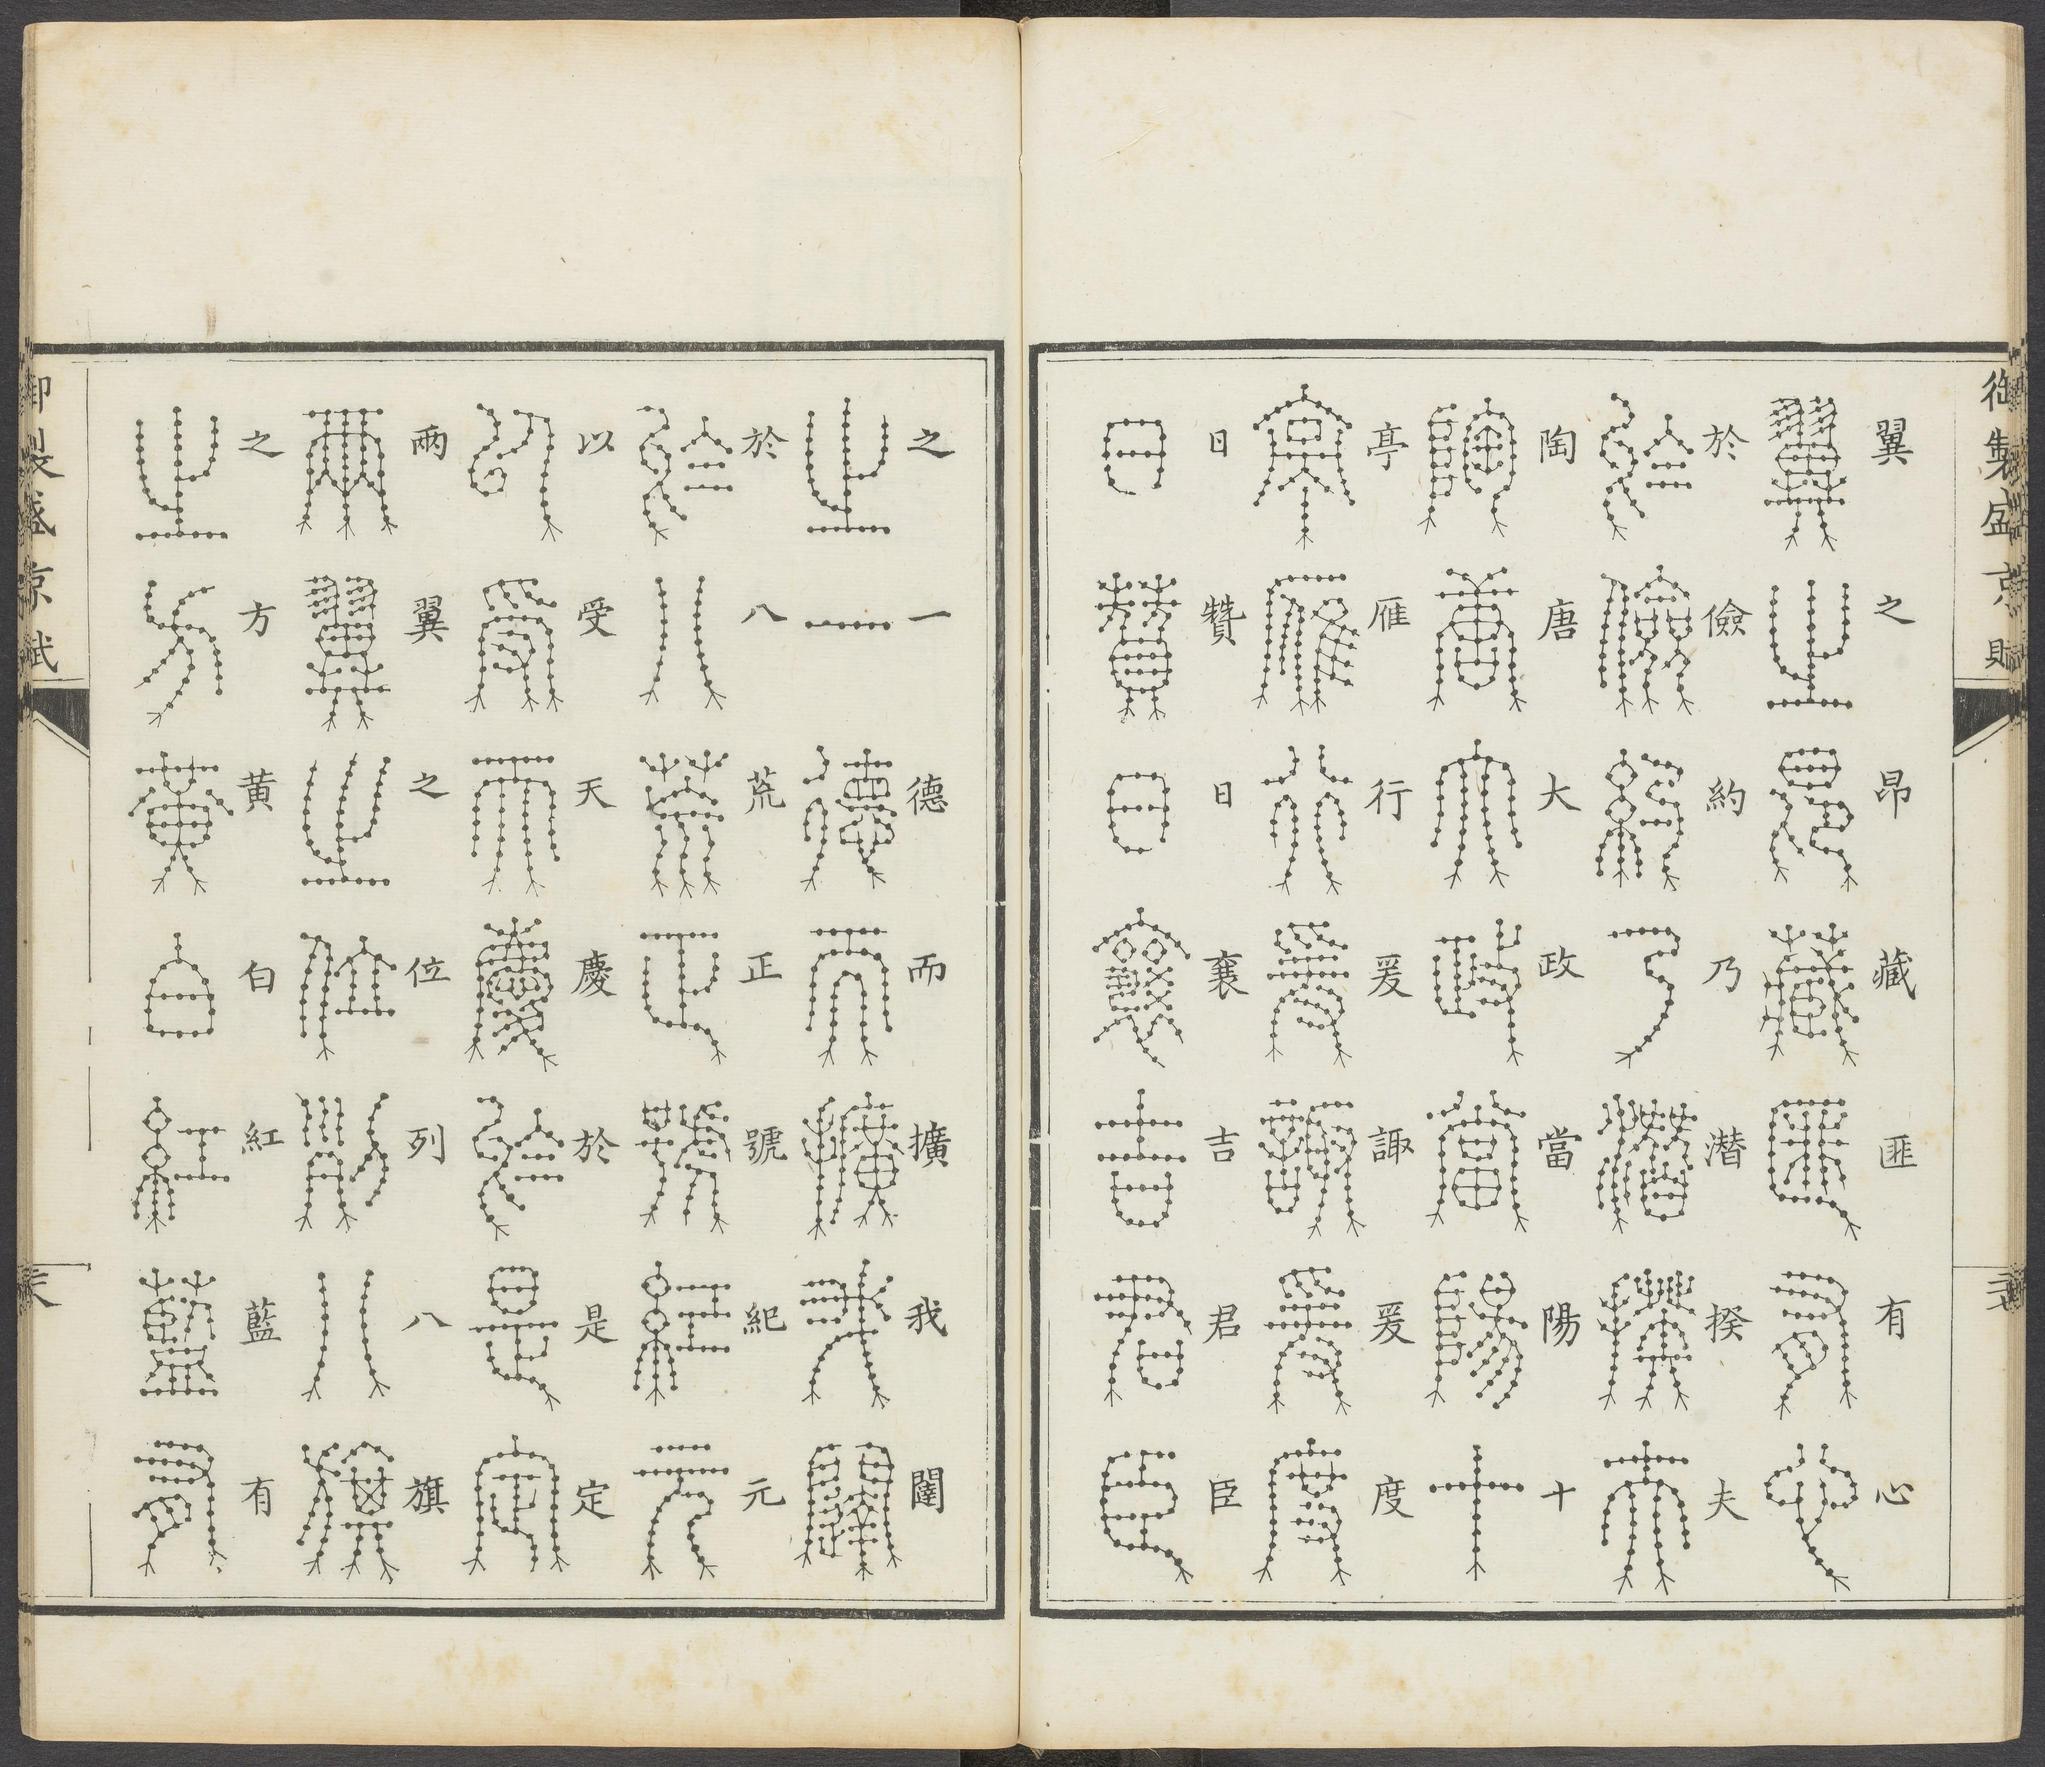 御製盛京賦
翼之昂藏匪有心
於儉約乃潜揆夫
陶唐大政當陽十
亭雁行爰諏爰度
日贊日襄吉君臣
之一德而擴我闥
於八荒正號紀元
以受天慶於是定
兩翼之位列八旗
之方黄白紅藍有
御製盛京賦